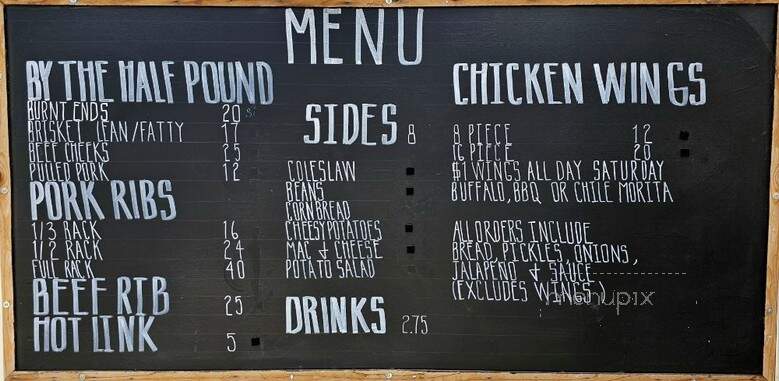 MENU
BY THE HALF POUND
BURNT ENDS 20
BRISKET LEAN/FATTY 17
BEEF CHEEKS 25
PULLED PORK 12
PORK RIBS
1/3 RACK 16
1/2 RACK 24
FULL RACK 40
BEEF RIB 25
HOT LINK 5
SIDES 8
COLESLAW
BEANS
CORNBREAD
CHEESY POTATOES
MAC & CHEESE
POTATO SALAD
DRINKS 2.75
CHICKEN WINGS
8 PIECE 12
16 PIECE 20
$1 WINGS ALL DAY SATURDAY
BUFFALO, BBQ OR CHILE MORITA
ALL ORDERS INCLUDE
BREAD, PICKLES, ONIONS,
JALAPEÑO & SAUCE
(EXCLUDES WINGS)
menupix